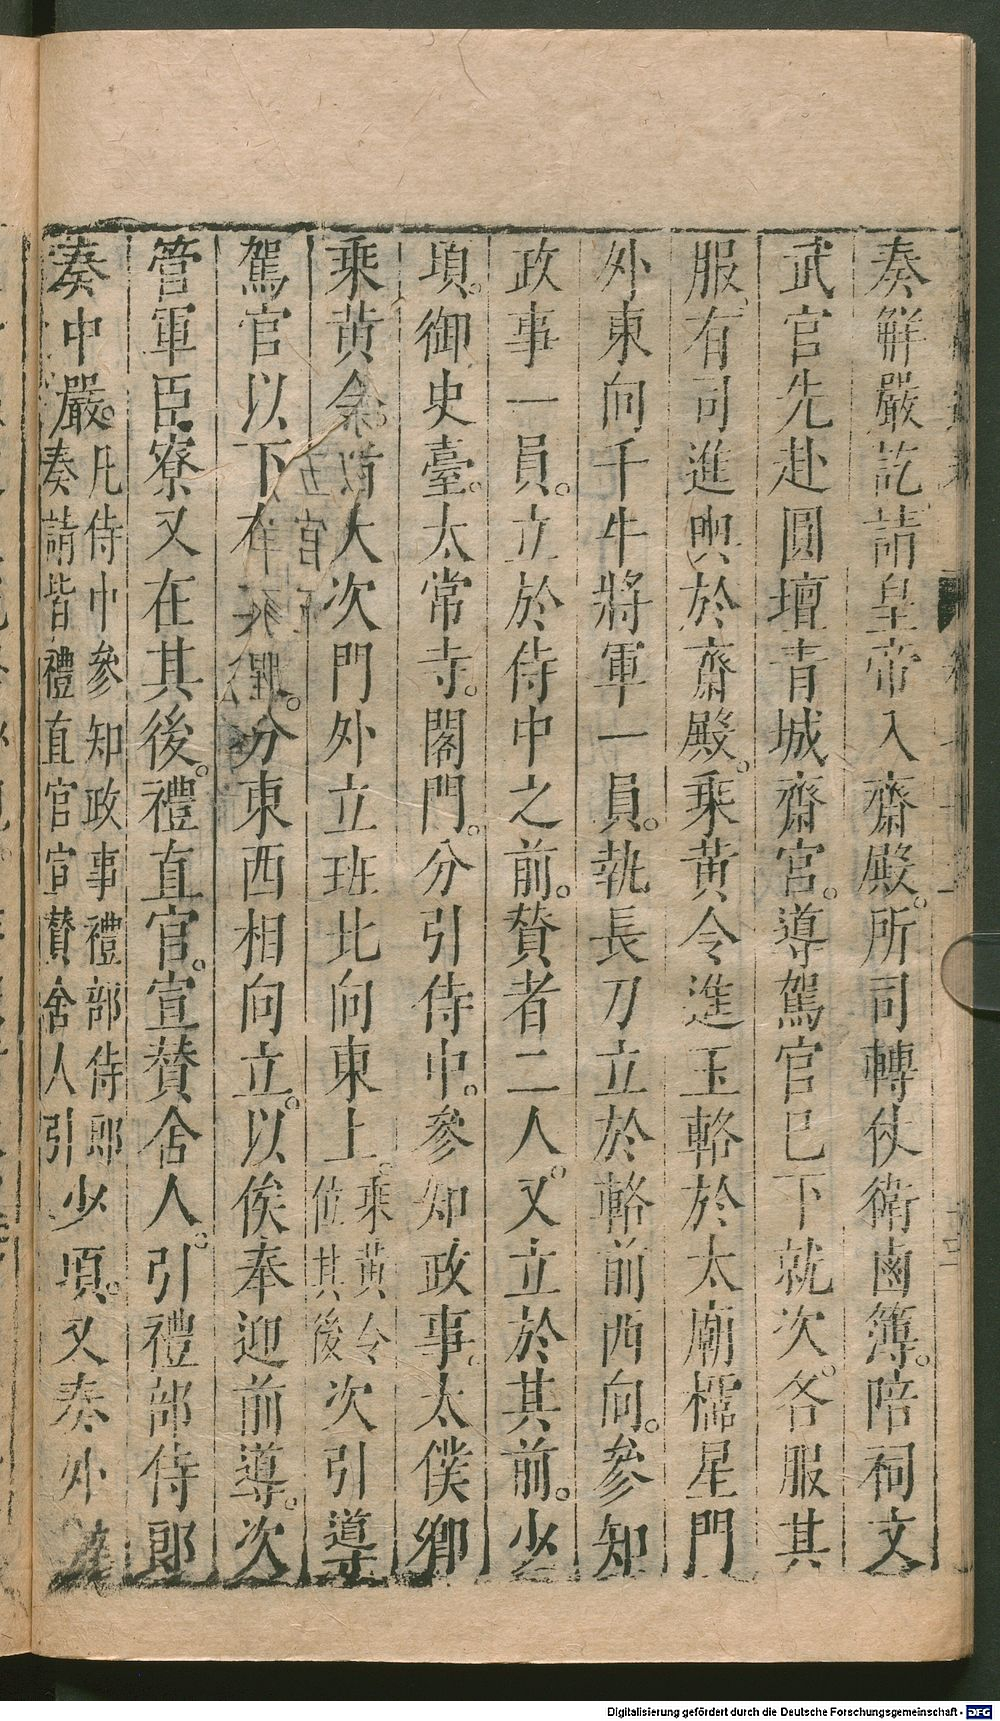 奏解嚴訖請皇帝入齋殿。所司轉仗衛鹵簿。陪祠文
武官先赴圓壇青城齋宮。導駕官已下就次。各服其
服。有司進輿於齋殿。乘黃令進玉輅於太廟櫺星門
外東向千牛將軍一員。執長刀立於輅前西向。參知
政事一員。立於侍中之前。贊者二人。又立於其前。少
頃。御史臺。太常寺。閣門。分引侍中。參知政事。太僕卿
乘黃令。大次門外立班北向東上。乘黃令位其後次引導
駕官以下分東西相向立。以俟奉迎前導。次
管軍臣寮又在其後。禮直官。宣贊舍人。引禮部侍郎
奏中嚴。凡侍中參知政事禮部侍郎奏請皆禮直官宣贊舍人引少頃。又奏外
Digitalisierung gefördert durch die Deutsche Forschungsgemeinschaft - DFG